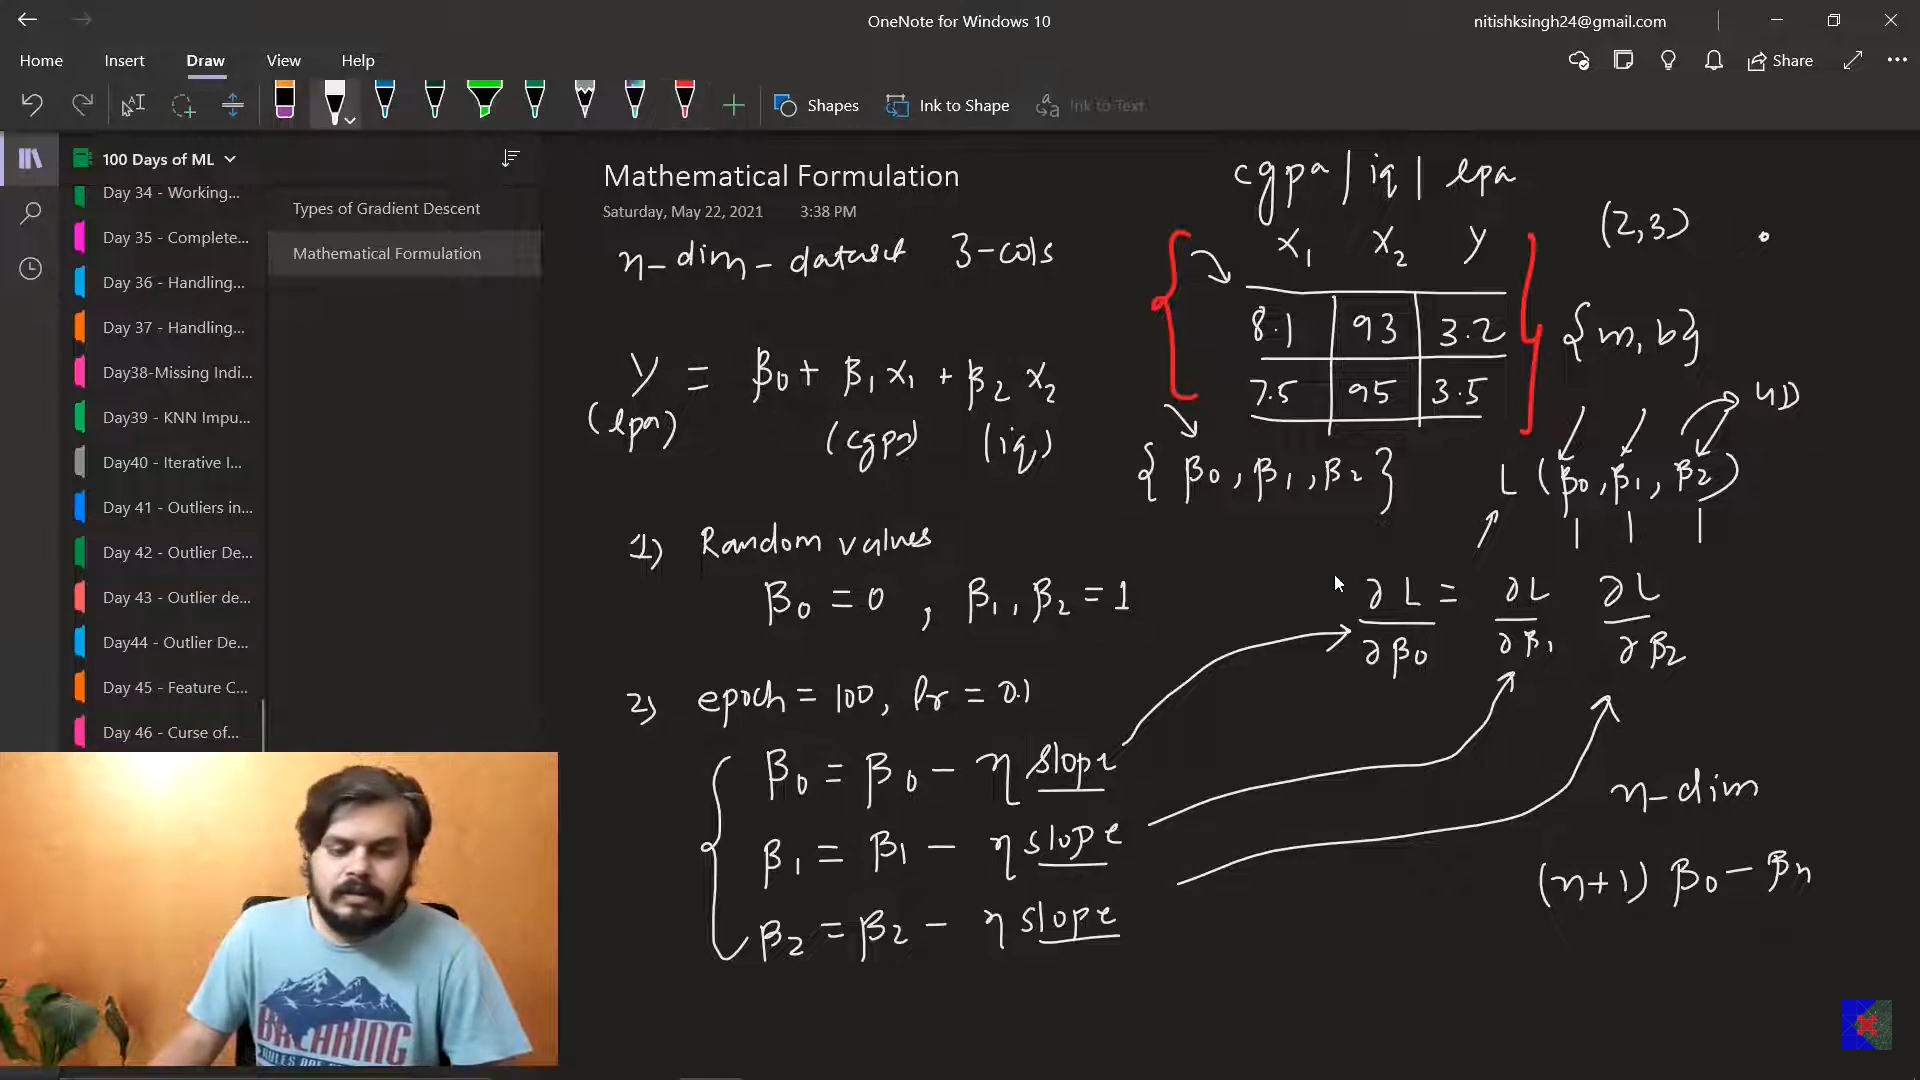 OneNote for Windows 10
nitishksingh24@gmail.com
Home Insert Draw View Help
Share
Shapes Ink to Shape Ink to Text
100 Days of ML
Day 34 - Working...
Day 35 - Complete...
Day 36 - Handling...
Day 37 - Handling...
Day38-Missing Indi...
Day39 - KNN Impu...
Day40 - Iterative I...
Day 41 - Outliers in...
Day 42 - Outlier De...
Day 43 - Outlier de...
Day44 - Outlier De...
Day 45 - Feature C...
Day 46 - Curse of...
Types of Gradient Descent
Mathematical Formulation
Mathematical Formulation
Saturday, May 22, 2021 3:38 PM
n-dim-dataset 3-cols
Y = β0 + β1 x1 + β2 x2
(lpa) (cgpa) (iq)
1) Random values
β0 = 0 , β1, β2 = 1
2) epoch = 100, lr = 0.1
β0 = β0 - η slope
β1 = β1 - η slope
β2 = β2 - η slope
cgpa | iq | lpa
X1 X2 Y
8.1 93 3.2
7.5 95 3.5
{ β0, β1, β2 }
(2,3)
{m, b}
4D
L (β0, β1, β2)
∂L/∂β0 = ∂L/∂β1 ∂L/∂β2
n-dim
(n+1) β0 - βn
BREAKING
RULES ARE